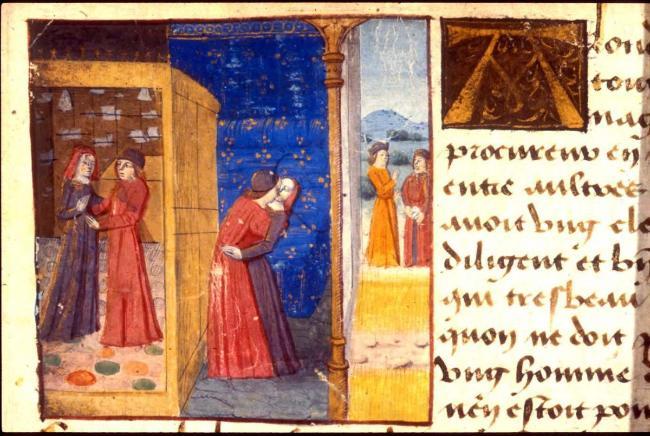 A
procureur en
entre aultres
auoit vng cle
diligent et bi
qui tresbeau
quon ne doit p
vng homme
nen estoit poi